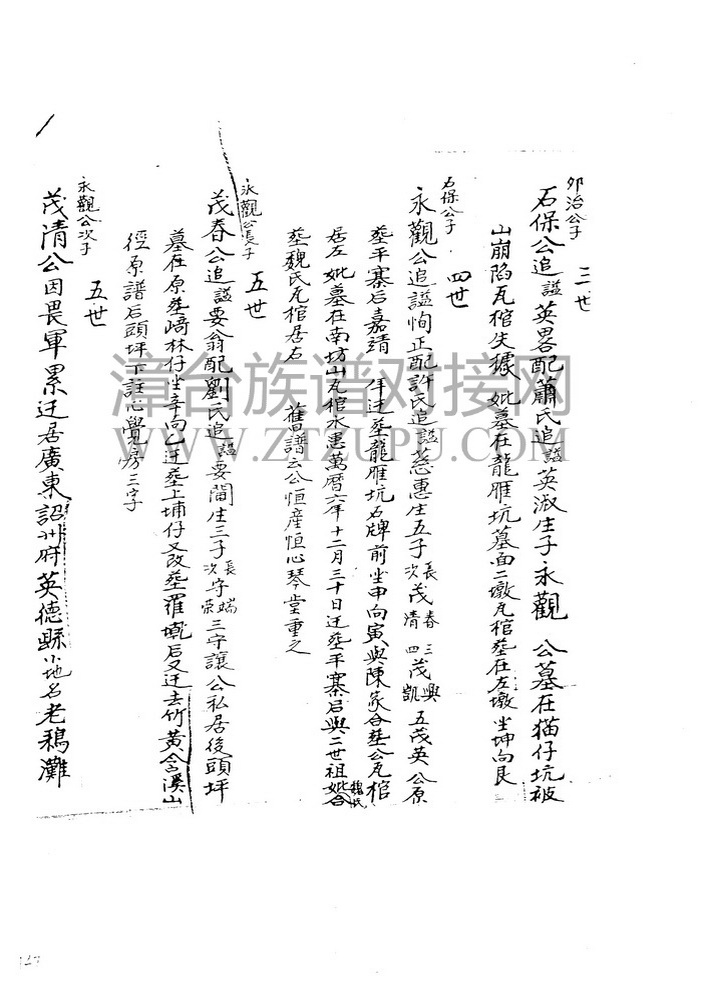 三世
邜治公子
石保公追謚英畧配蕭氏追謚英淑生子永觀 公墓在猫仔坑被
山崩陷瓦棺失據 妣墓在龍雁坑墓面二墩瓦棺塟在左墩坐坤向艮
四世
石保公子
永觀公追謚恂正配許氏追謚慈惠生五子長茂春次茂清三茂興四茂凱五茂英 公原
塟平寨后嘉靖 年迁塟龍雁坑石牌前坐申向寅與陳家合塟公瓦棺
居左 妣墓在南坊山瓦棺水惠萬曆六年十二月三十日迁塟平寨后與二世祖妣魏氏合
塟魏氏瓦棺居右 舊譜云公恒産恒心琴堂重之
五世
永觀公長子
茂春公追謚要翁配劉氏追謚要間生三子長守端次守荣三守讓 公私居後頭坪
墓在原塟崎林仔坐辛向乙迁塟上埔仔又改塟羅墘后又迁去竹黄含溪山
徑原譜后頭坪下註心覺房三字
五世
永觀公次子
茂清公因畏軍累迁居廣東韶州府英德縣小地名老鴉灘
漳台族谱对接网
WWW.ZTZUPU.COM